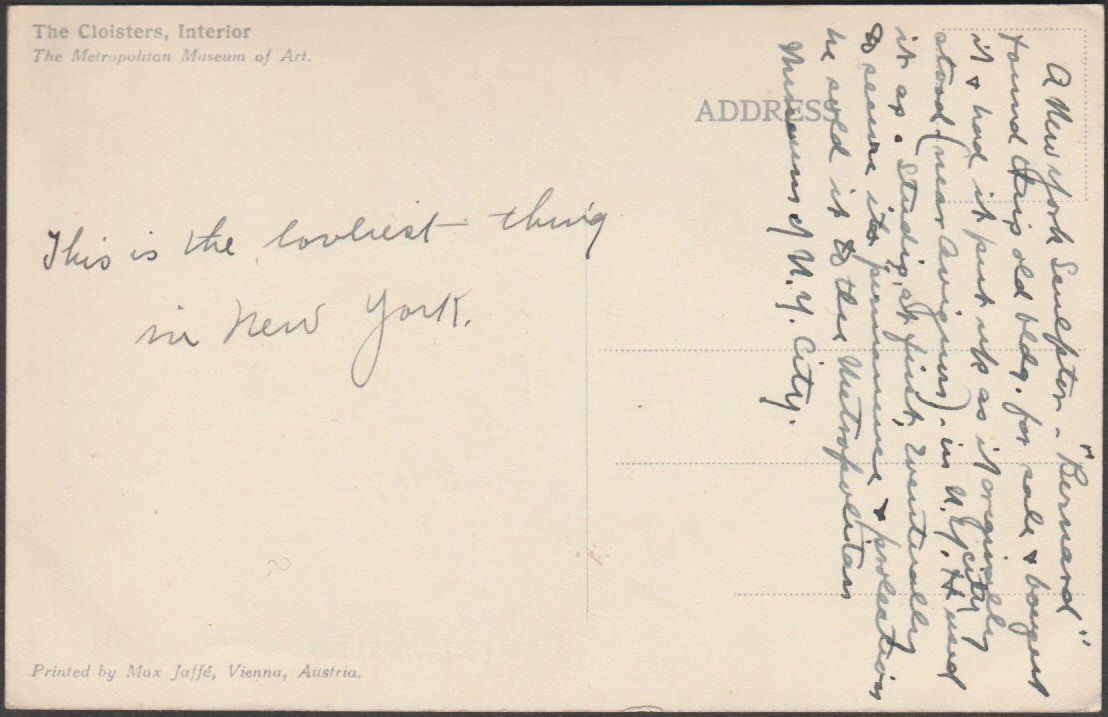 The Cloisters, Interior
The Metropolitan Museum of Art.
ADDRESS
This is the lovliest thing
in New York.
A New York Sculptor - "Bernard"
found this old bldg. for sale & bought
it & had it put up as it originally
stood (near Avignon) - in N.Y. City. He used
it as a Studio, at first, eventually
to secure its permanence & protection
he sold it to the Metropolitan
Museum of N.Y. City.
Printed by Max Jaffé, Vienna, Austria.